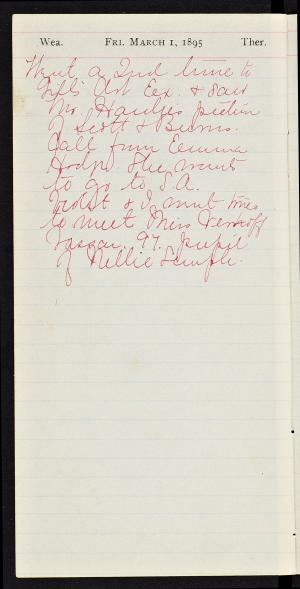 Wea. Fri. March 1, 1895 Ther.
Went a 2nd time to
Gill's Art Ex. & saw
Mr. picture
of Scott & Burns.
Call from Emma
She wants
to go to S.A.
& I went
to meet Miss
Vassar. 97. pupil
of Nellie Temple.